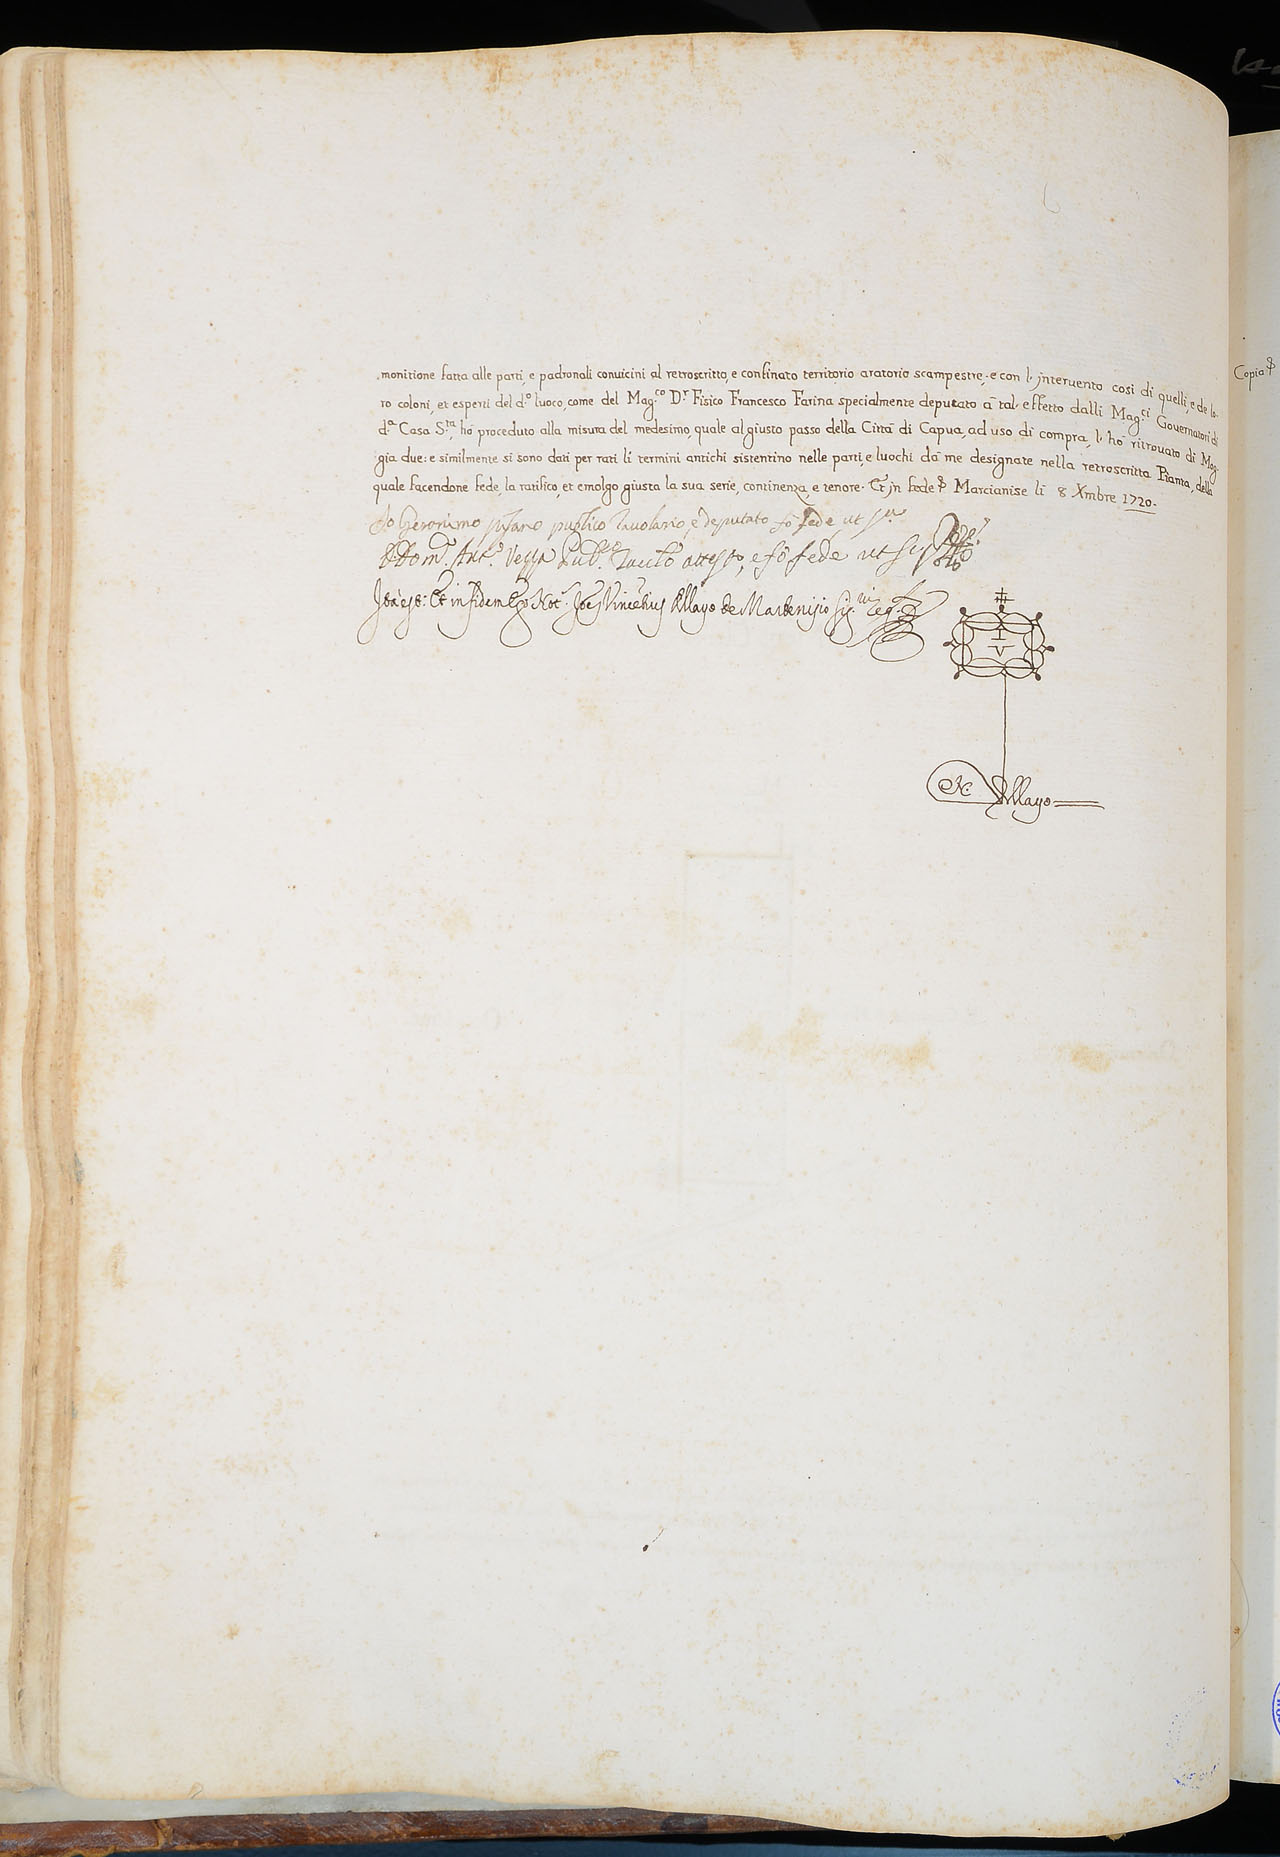 monitione fatta alle parti, e padronali conuicini al retroscritto, e confinato territorio aratorio scampestre, e con l'interuento così di quelli, e de lo-
ro coloni, et esperti del d.º luoco, come del Mag.co D.r Fisico Francesco Farina specialmente deputato à tal' effetto dalli Mag.ci Gouernatori di
d.ª Casa S.ta, hò proceduto alla misura del medesimo, quale al giusto passo della Città di Capua, ad uso di compra, l'hò ritrouato di Mog-
gia due: e similmente si sono dati per rati li termini antichi sistentino nelle parti, e luochi dà me designate nella retroscritta Pianta, della
quale facendone fede, la ratifico, et emolgo giusta la sua serie, continenza, e tenore. Et jn fede Marcianise li 8 Xmbre 1720.
Io Geronimo publico Tauolario, e deputato fò fede ut
D. Dom.º Ant.º Pub.co attesto, e fò fede ut
Ita est: Et in fidem Ego Not.r Joes Vincentius Allayo de Marcenisio
I
V
N. Allayo
Copia